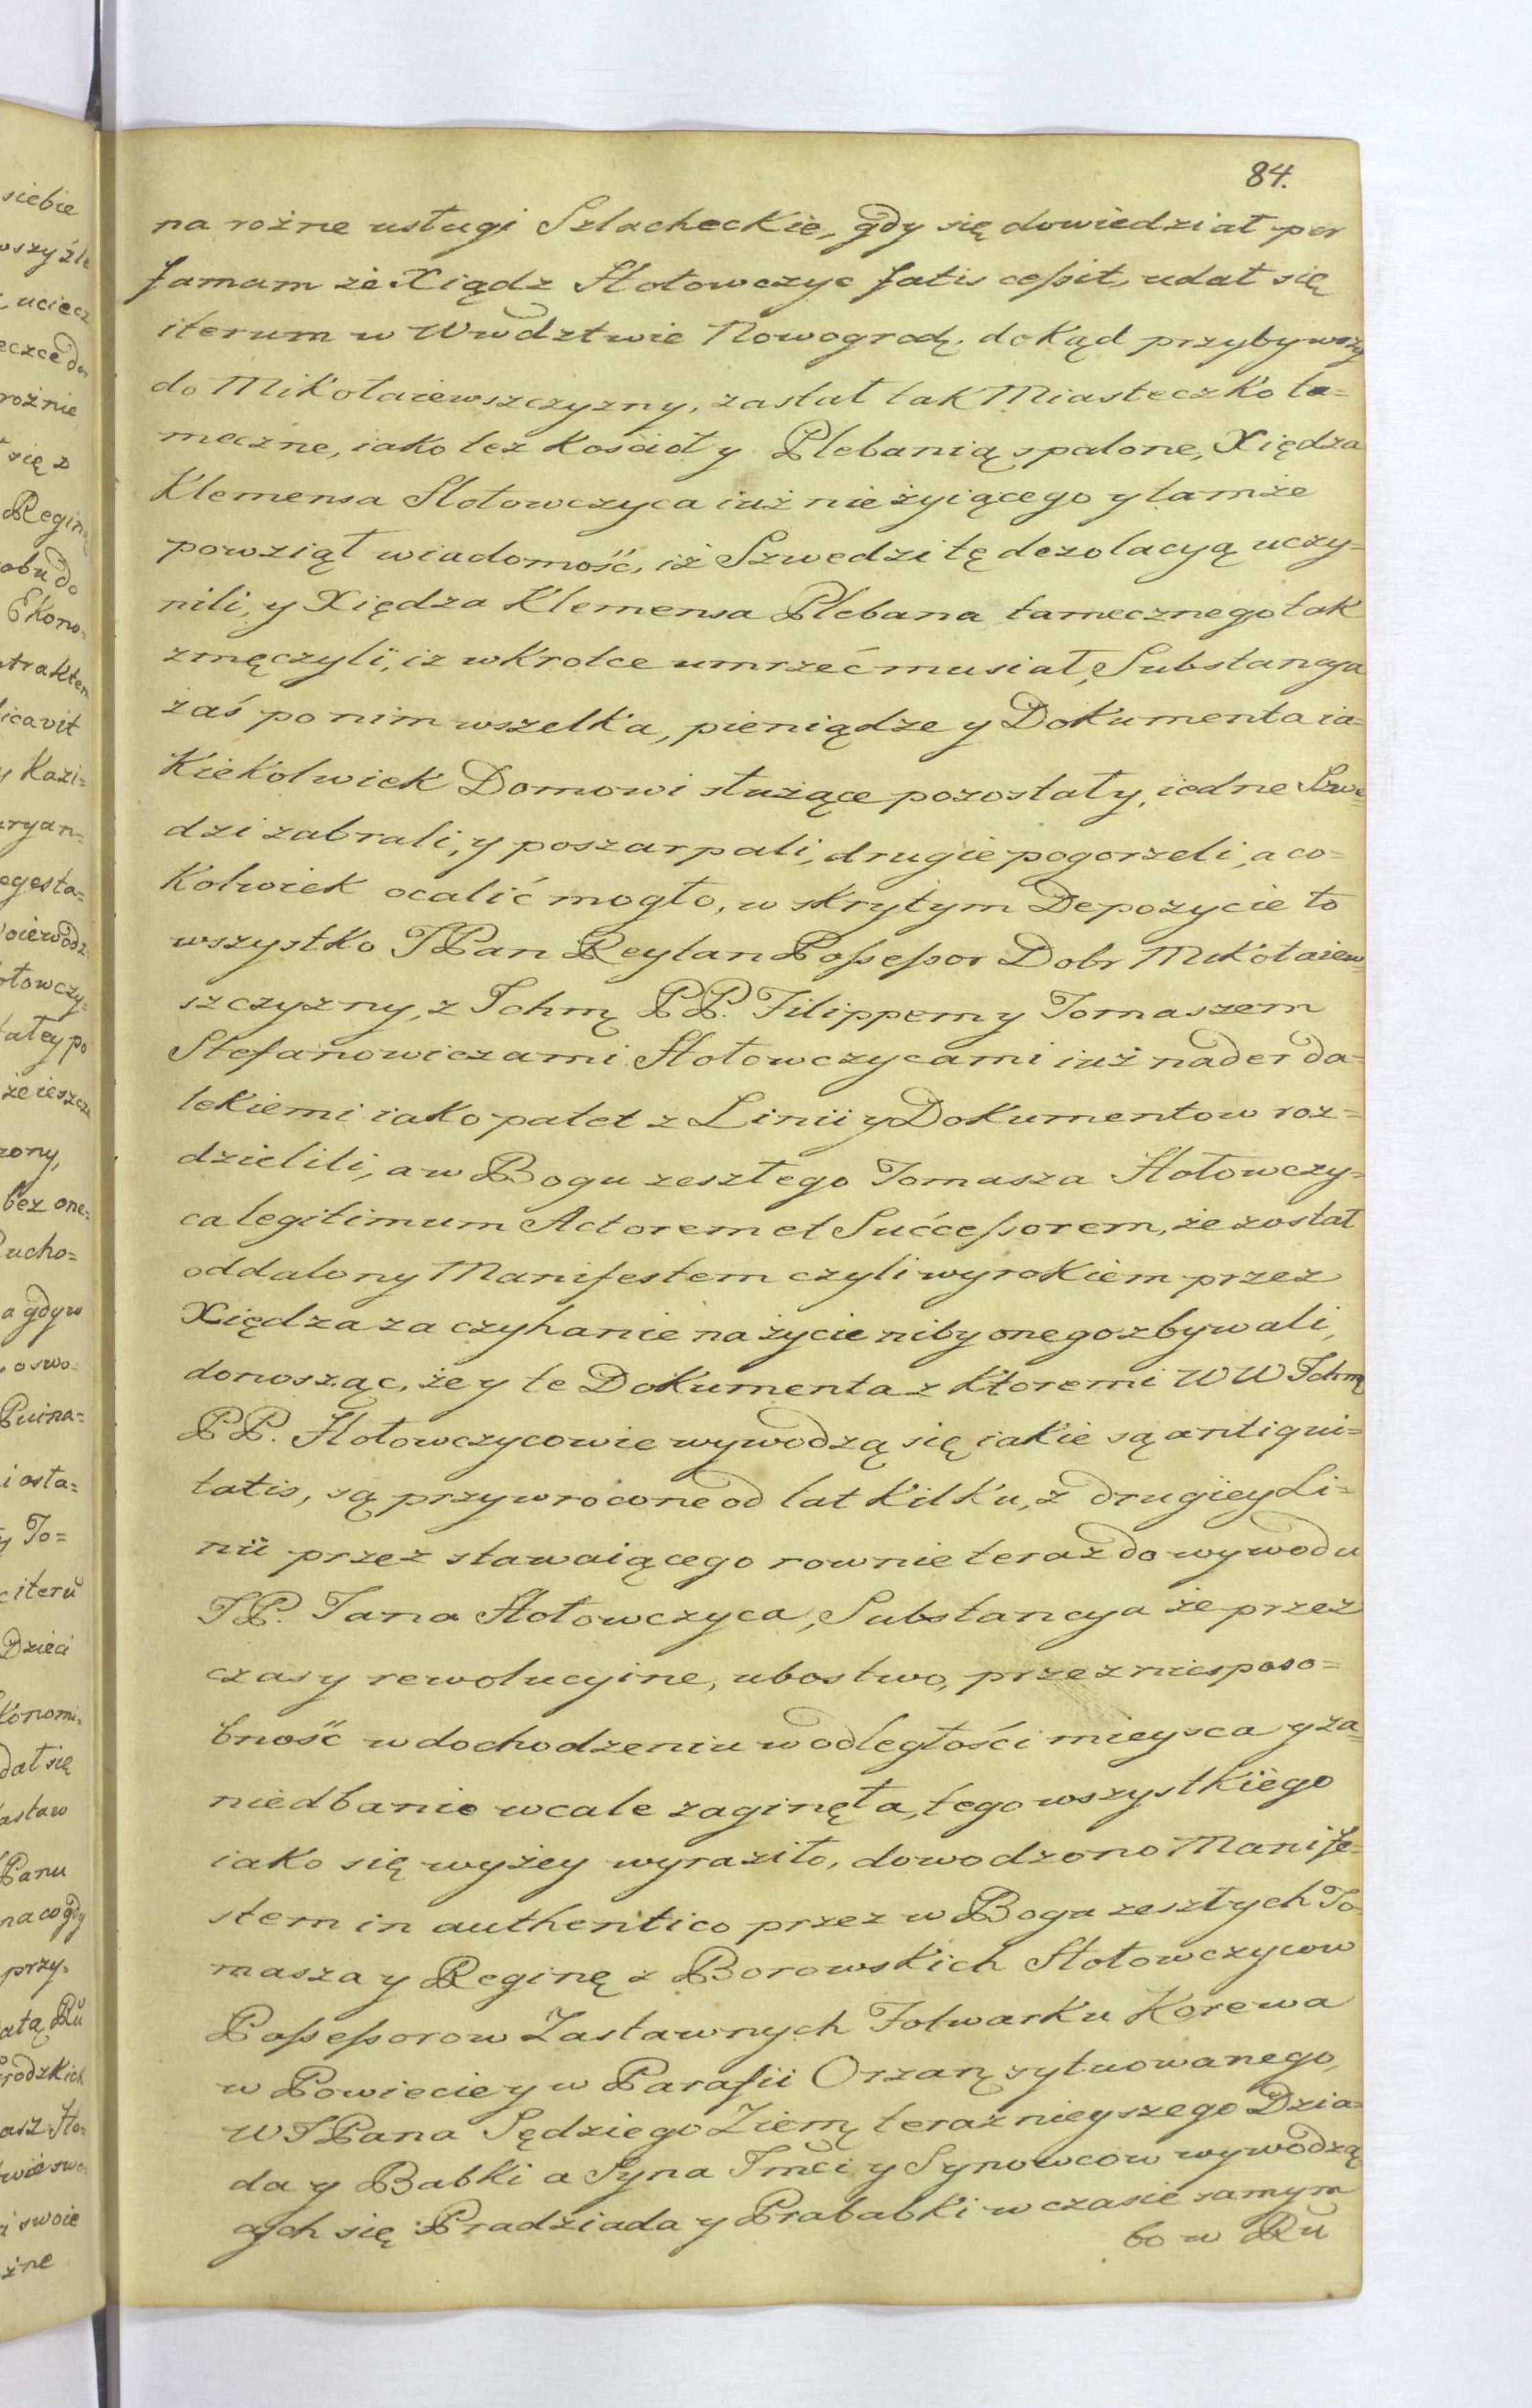 84.
na rożne usługi Szlacheckie, gdy się dowiedział per
famam że Xiądz Hołowczyc fatis ceßit, udał się
iterum w Wwdztwie Nowogrodz. dokąd przybywszy
do Mikołaiewszczyzny, zastał tak Miasteczko ta=
meczne, iako też kościoł y Plebanią spalone, Xiędza
Klemensa Hołowczyca iuż nieżyiącego y tamże
powziął wiadomość, iż Szwedzi tę dezolacyą uczy=
nili, y Xiędza Klemensa Plebana tamecznego tak
zmęczyli, iż wkrotce umrzeć musiał, Substancya
zaś po nim wszelka, pieniądze y Dokumenta ia=
kiekolwiek Domowi służące pozostały, iedne Szwe
dzi zabrali, y poszarpali, drugie pogorzeli, a co=
kolwiek ocalić mogło, w skrytym Depozycie to
wszystko JPan Reytan Poßeßor Dobr Mikołaiew=
szczyzny, z Jchm PP. Filippem y Tomaszem
Stefanowiczami Hołowczycami iuż nader da=
lekiemi iako patet z Linii y Dokumentow roz=
dzielili, a w Bogu zeszłego Tomasza Hołowczy=
ca legitimum Actorem et Succeßorem, że został
oddalony Manifestem czyli wyrokiem przez
Xiędza za czyhanie na życie niby onego zbywali,
donosząc, że y te Dokumenta z ktoremi WW Jchm
PP. Hołowczycowie wywodzą się iakie są antiqui=
tatis, są przywrocone od lat kilku, z drugiey Li=
nii przez stawaiącego rownie teraz do wywodu
JP. Jana Hołowczyca, Substancya że przez
czasy rewolucyine, ubostwo, przez niesposo=
bność w dochodzeniu w odległości mieysca y za=
niedbanie wcale zaginęła, tego wszystkiego
iako się wyżey wyraziło, dowodzono Manife=
stem in authentico przez w Bogu zeszłych To
masza y Reginę z Borowskich Hołowczycow
Poßeßorow Zastawnych Folwarku Korewa
w Powiecie y w Parafii Orzan. sytuowanego,
WJPana Sędziego Ziem. teraznieyszego Dzia=
da y Babki a Syna Jmci y Synowcow wywodzą
cych się Pradziada y Prababki w czasie samym
bo w Ru